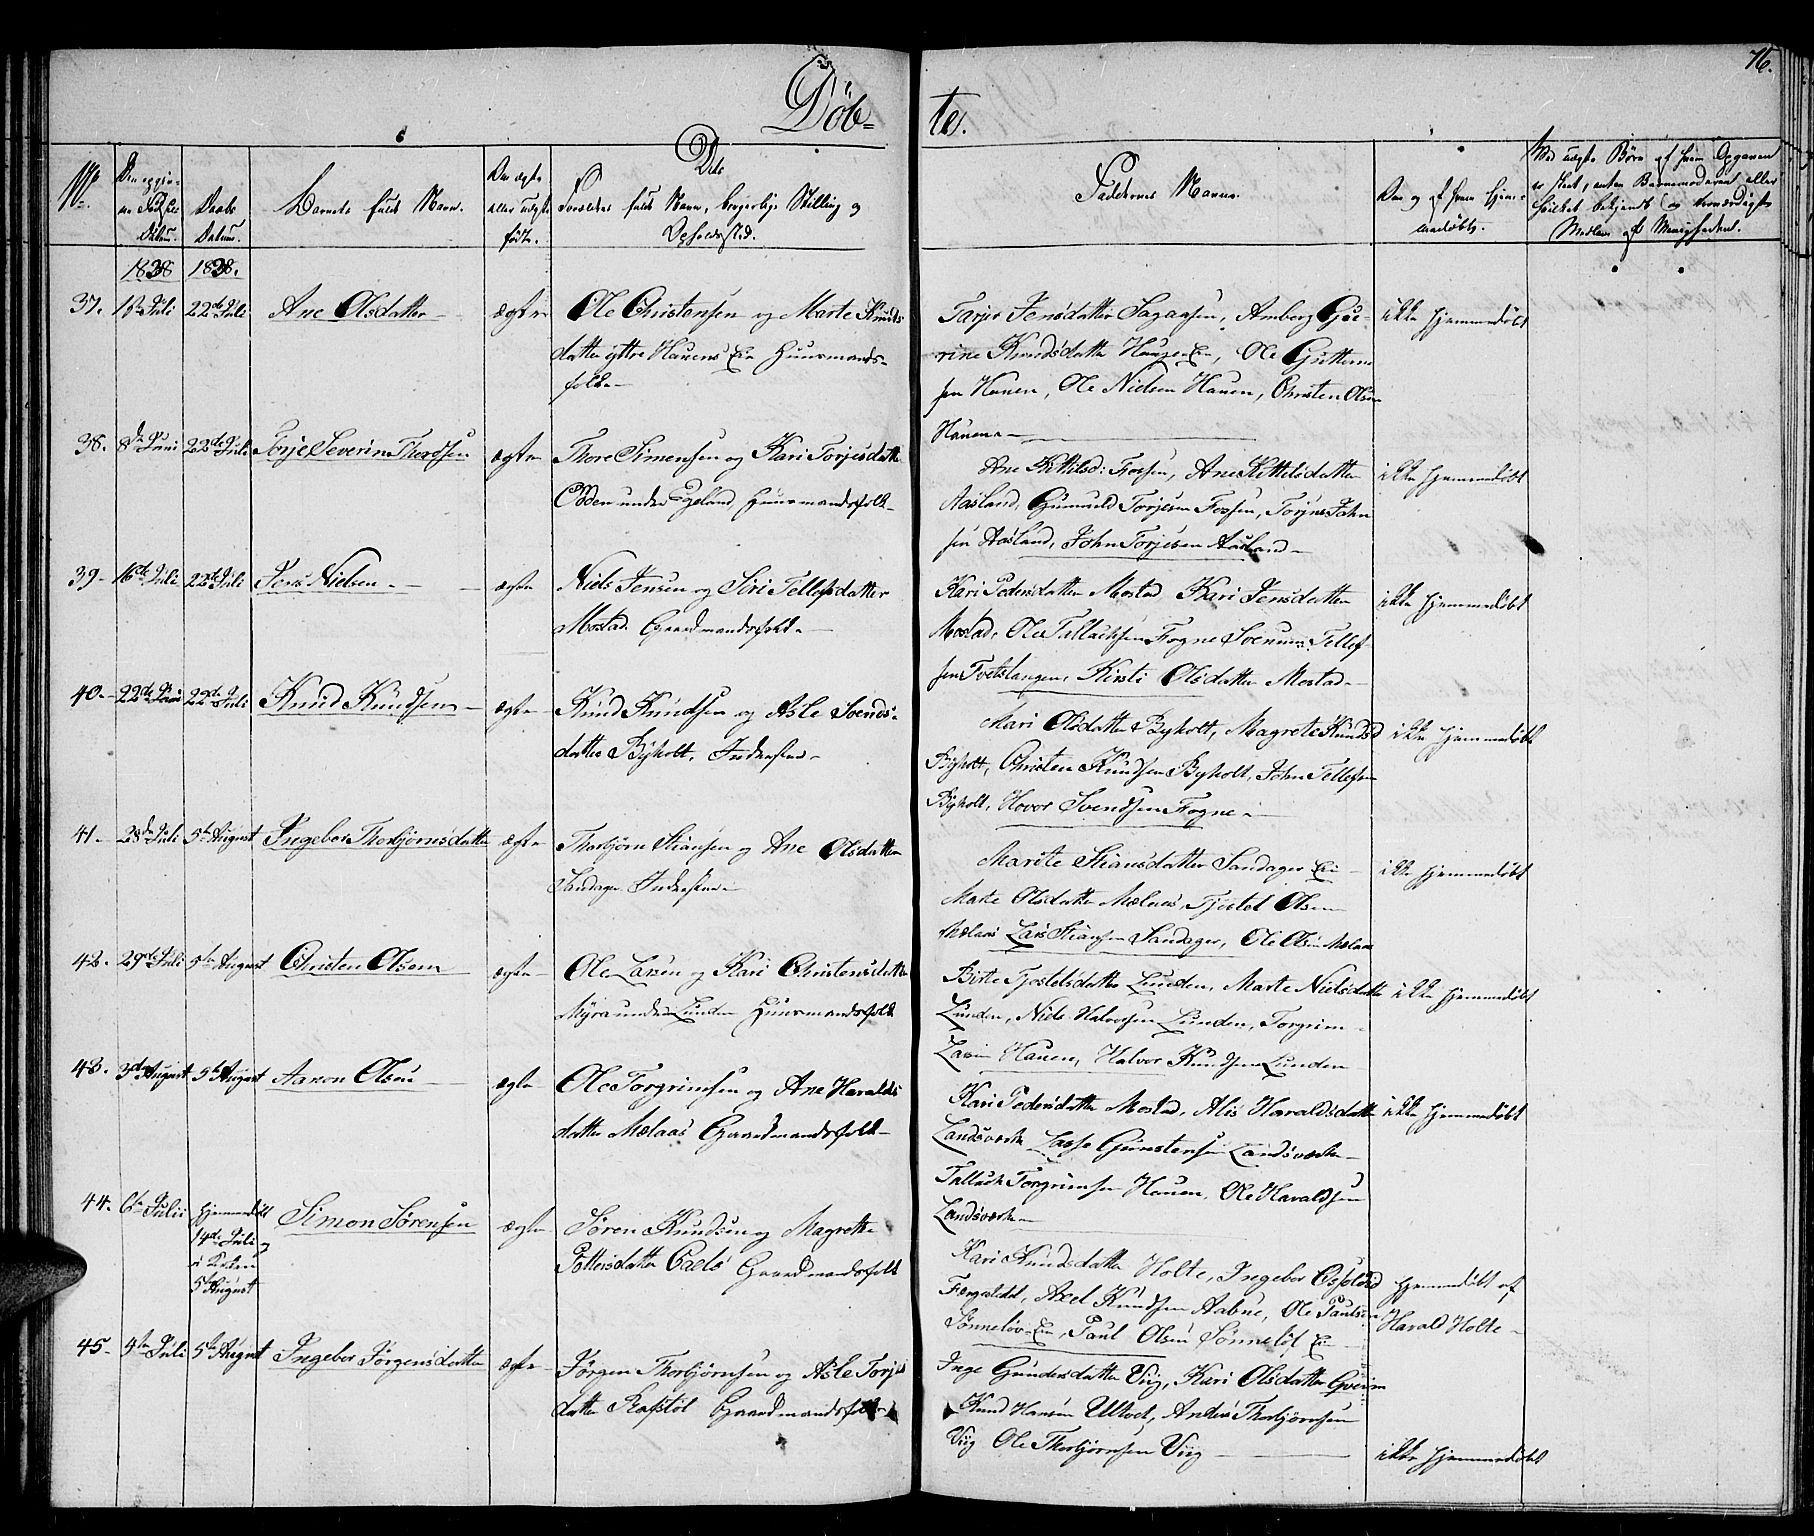 76.
Döb-
tes.
No.
Den opgivne Fødsels Datum.
Daabs Datum.
Barnets fulde Navn.
Om ægte eller uægte født.
Dets
Forældres fulde Navn, borgerlige Stilling og
Opholdssted.
Faddernes Navne.
Om og af hvem hjemmedøbt.
Med uægte Børn af hvem Opgaven
er skeet, enten Barnemoderen eller
Medlem af Menigheden.
1838 1838.
37. Juli 22de Juli Ane Olsdatter ægte Ole Christensen og Marte Knuds-
datter yttre Hauens Eie Huusmands-
folk
Tarjer Jensdatter Amberg Gu-
rine Knudsdatter Ole Guttorm-
sen Hauen, Ole Nielsen Hauen, Christen Olsen
Hauen
ikke hjemmedöbt
38. 8de Juni 22de Juli Torje Severin Thorsen ægte Thore Simensen og Kari Torjesdatter
Odden under Egeland, Huusmandsfolk
Ane Kittilsd: Fossen, Ane Kittelsdatter
Aasland, Gunuld Torjesen Fossen, Torjus John
sen Aasland, John Torjesen Aasland
ikke hjemmedöbt
39 16de Juli 22de Juli Jens Nielsen ægte Niels Jensen og Siri Tellefsdatter
Mostad Gaardmandsfolk
Kari Pedersdatter Mostad Kari Jensdatter
Mostad, Ole Tallachsen Fogne Tellef-
sen Tvetslangen, Kirsti Olsdatter Mostad
ikke hjemmedöbt
40 22de Juni 22de Juli Knud Knudsen ægte Knud Knudsen og Asle Svends-
datter Byholt, Inderster
Mari Olsdatter Byholt, Magrete Knudsd
Byholt, Christen Knudsen Byholt, John Tellefsen
Byholt, Hovor Svendsen Fogne
ikke hjemmedöbt
41 28de Juli 5te August Ingebor Thorbjørnsdatter ægte Thorbjørn Stiansen og Ane Olsdatter
Sandager Inderster
Marite Stiansdatter Sandager Eie
Marte Olsdatter Mælaas, Tjostol Olsen
Mælaas Lars Stiansen Sandager, Ole Olsen Mælaas
ikke hjemmedöbt
42. 29de Juli 5te August Christen Olsen ægte Ole Larsen og Kari Christensdatter
Myra under Lunden Huusmandsfolk
Birte Tjostelsdatter Lunden, Marte Nielsdatter
Lunden, Niels Halvorsen Lunden, Torgrim
Larsen Hauen, Halvor Knudsen Lunden
ikke hjemmedöbt
43. 3de August 5te August Aanon Olsen ægte Ole Torgrimsen og Ane Haralds
datter Mælaas Gaardmandsfolk
Kari Pedersdatter Mostad, Alis Haraldsdatter
Landsværk Lasse Gunstensen Landsværk
Tallach Torgrimsen Hauen, Ole Haraldsen
Landsværk
ikke hjemmedöbt
44. 6te Julii hjemmedöbt
14de Juli og
i Kirken
5te August
Simon Sørensen ægte Søren Knudsen og Magrethe
Pettersdatter Gaardmandsfolk
Kari Knudsdatter Holte, Ingebor Osuldsd
Axel Knudsen Aabue, Ole Paulsen
Sønneløv Eie, Paul Olsen Sønneløf Eie
hjemmedöbt af
Harald Holte
45 5te Juli 5te August Ingebor Jørgensdatter ægte Jørgen Thorbjørnsen og Asle Torjes
datter Rafstöl Gaardmandsfolk
Inge Gundersdatter Viig, Kari Olsdatter
Knud Hansen Ulltvet, Anders Thorbjørnsen
Viig Ole Thorbjørnsen Viig
ikke hjemmedöbt